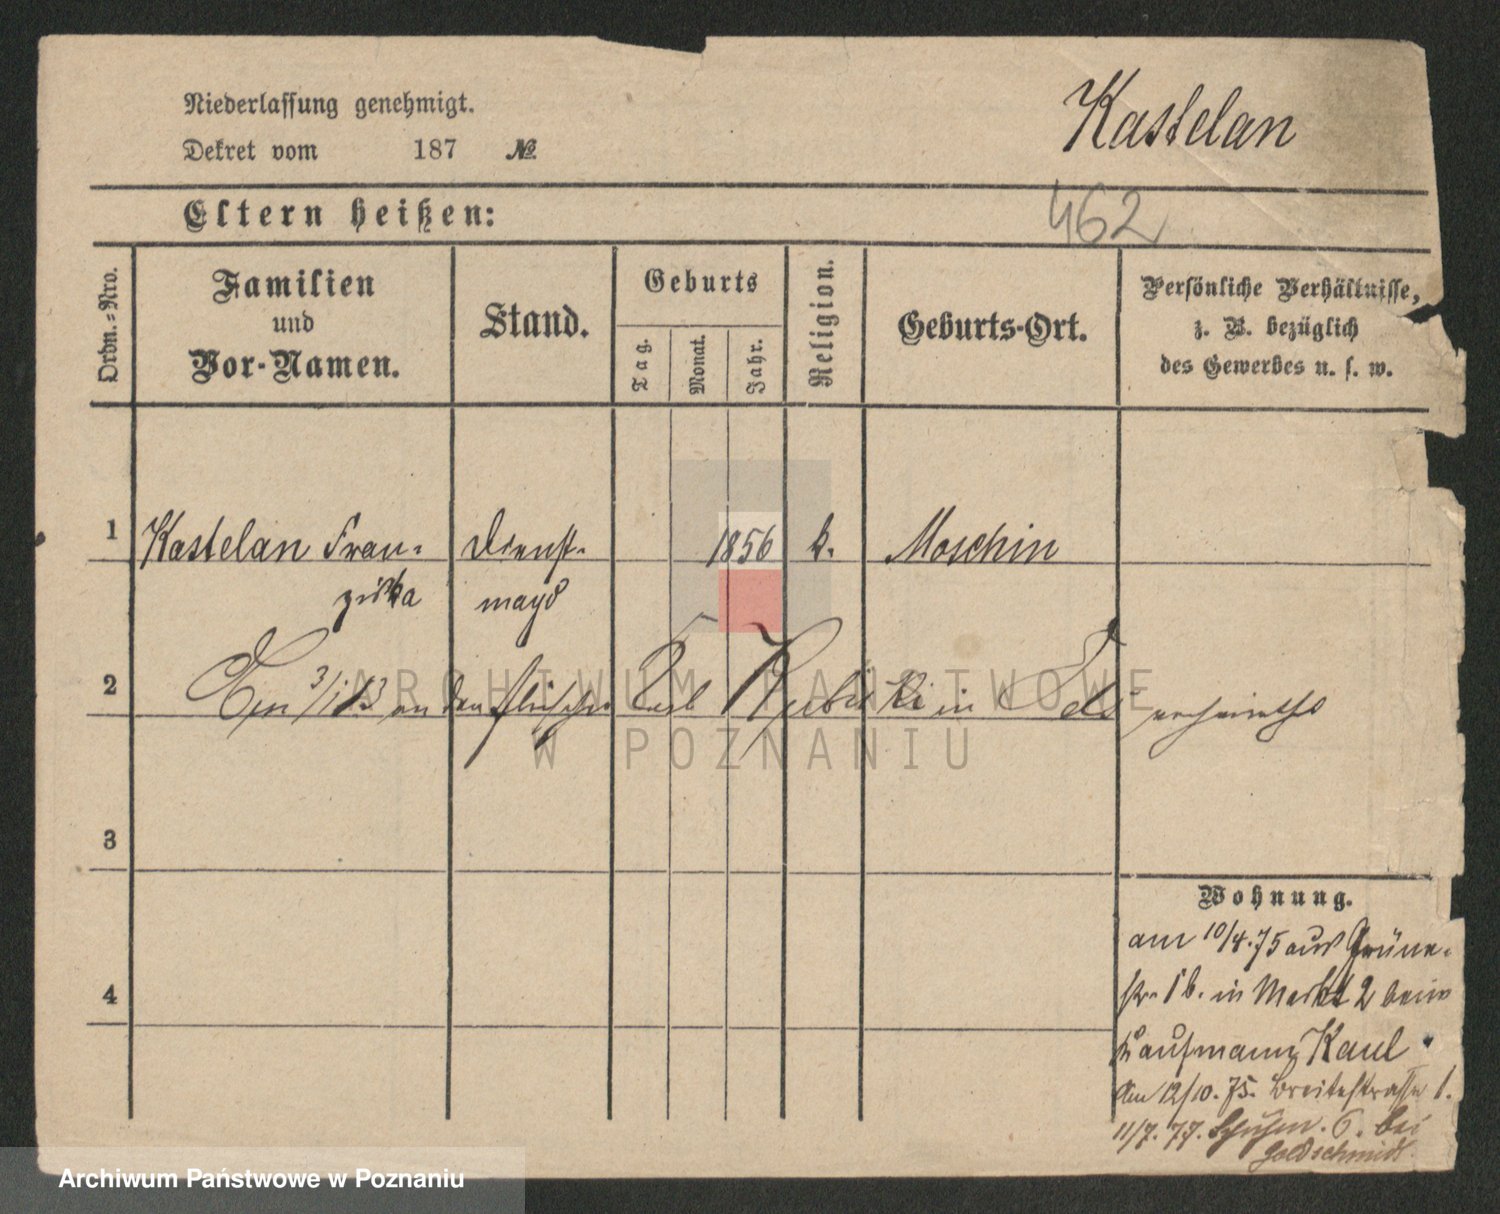 Niederlassung genehmigt.
Dekret vom 187 №
Kastelan
462
Eltern heißen:
Ordn.-Nro.
Familien
und
Vor-Namen.
Stand.
Geburts
Tag.
Monat.
Jahr.
Religion.
Geburts-Ort.
Persönliche Verhältnisse,
z. B. bezüglich
des Gewerbes u. s. w.
1 Kastelan Fran- Dienst- 1856 k. Moschin
ziska magd
2 3/1 83 an den Fleischer Carl in
3
4
Wohnung.
am 10/4.75 aus Grüne-
str. 1b. in Markt 2 beim
Kaufmann Kaul
Am 12/10.75. Breitestrasse 1.
11/7.77. 6. bei
Goldschmidt
ARCHIWUM PAŃSTWOWE
W POZNANIU
Archiwum Państwowe w Poznaniu